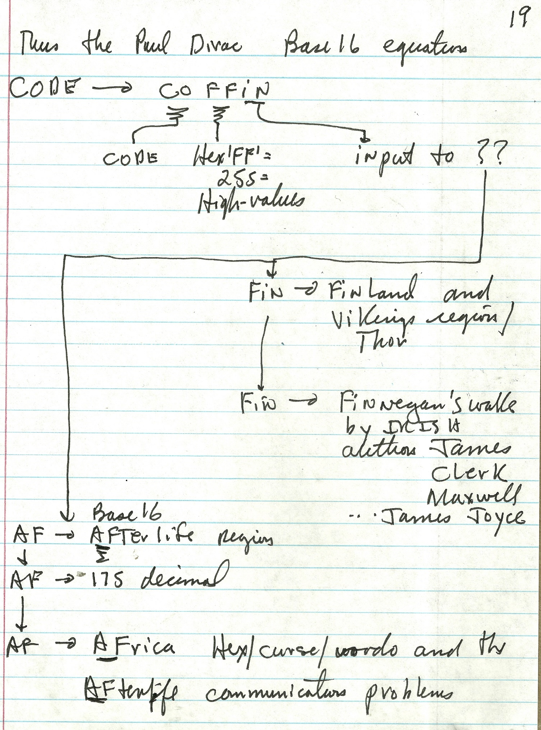 19
Thus the Paul Dirac Base 16 equation
CODE → CO FFiN
CODE Hex'FF'= input to ??
255=
High-values
FiN → FiNLand and
Vikings region/
Thor
FiN → FiNNegan's wake
by IRISH
author James
Clerk
Maxwell
... James Joyce
Base 16
AF → AFTer life region
AF → 175 decimal
AF → AFrica Hex/curse/words and the
AFterlife communications problems